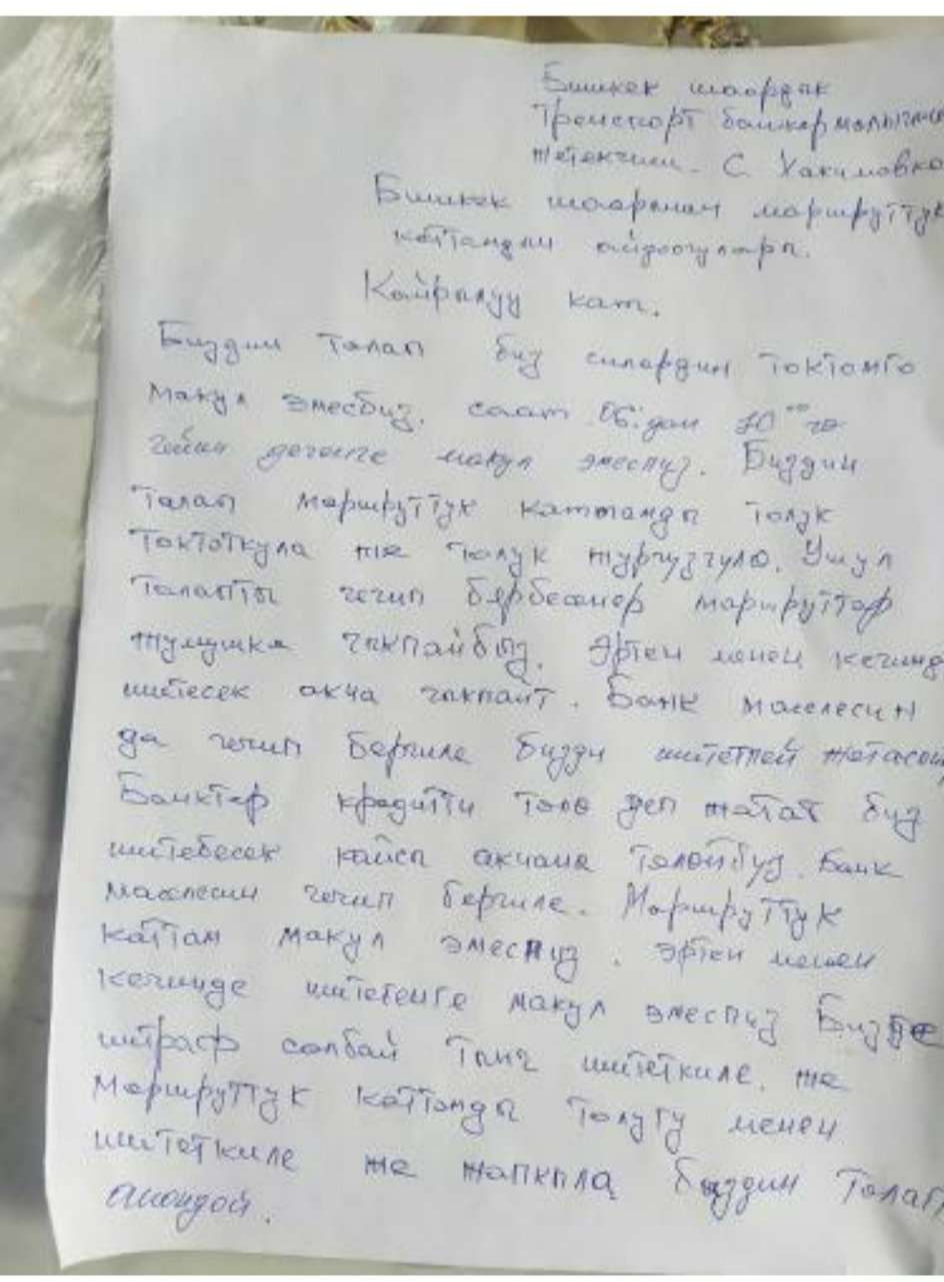 Бишкек шаардык
Транспорт башкармалыгынын
жетекчиси. С. Хакимовко
Бишкек шаарынын маршруттук
каттамдын айдоочулары.
Кайрылуу кат.
Биздин талап биз силердин токтомго
макул эмесбиз. саат 06:дан 10⁰⁰ го
чейин дегенге макул эмеспиз. Биздин
талап маршруттук каттамды толук
токтоткула же толук жургузгуло. Ушул
талапты чечип бербесенер маршруттар
жумушка чыкпайбыз. Эртен менен кечинде
иштесек акча чыкпайт. Банк маселесин
да чечип бергиле бизди иштетпей жатасы
Банктар кредитти толо деп жатат биз
иштебесек кайсы акчана толойбуз. Банк
маселесин чечип бергиле. Маршруттук
каттам макул эмеспиз. эртен менен
кечинде иштегенге макул эмеспиз Бизге
штраф салбай тынч иштеткиле. же
Маршруттук каттамды толугу менен
иштеткиле же жапкыла биздин талап
ошондой.